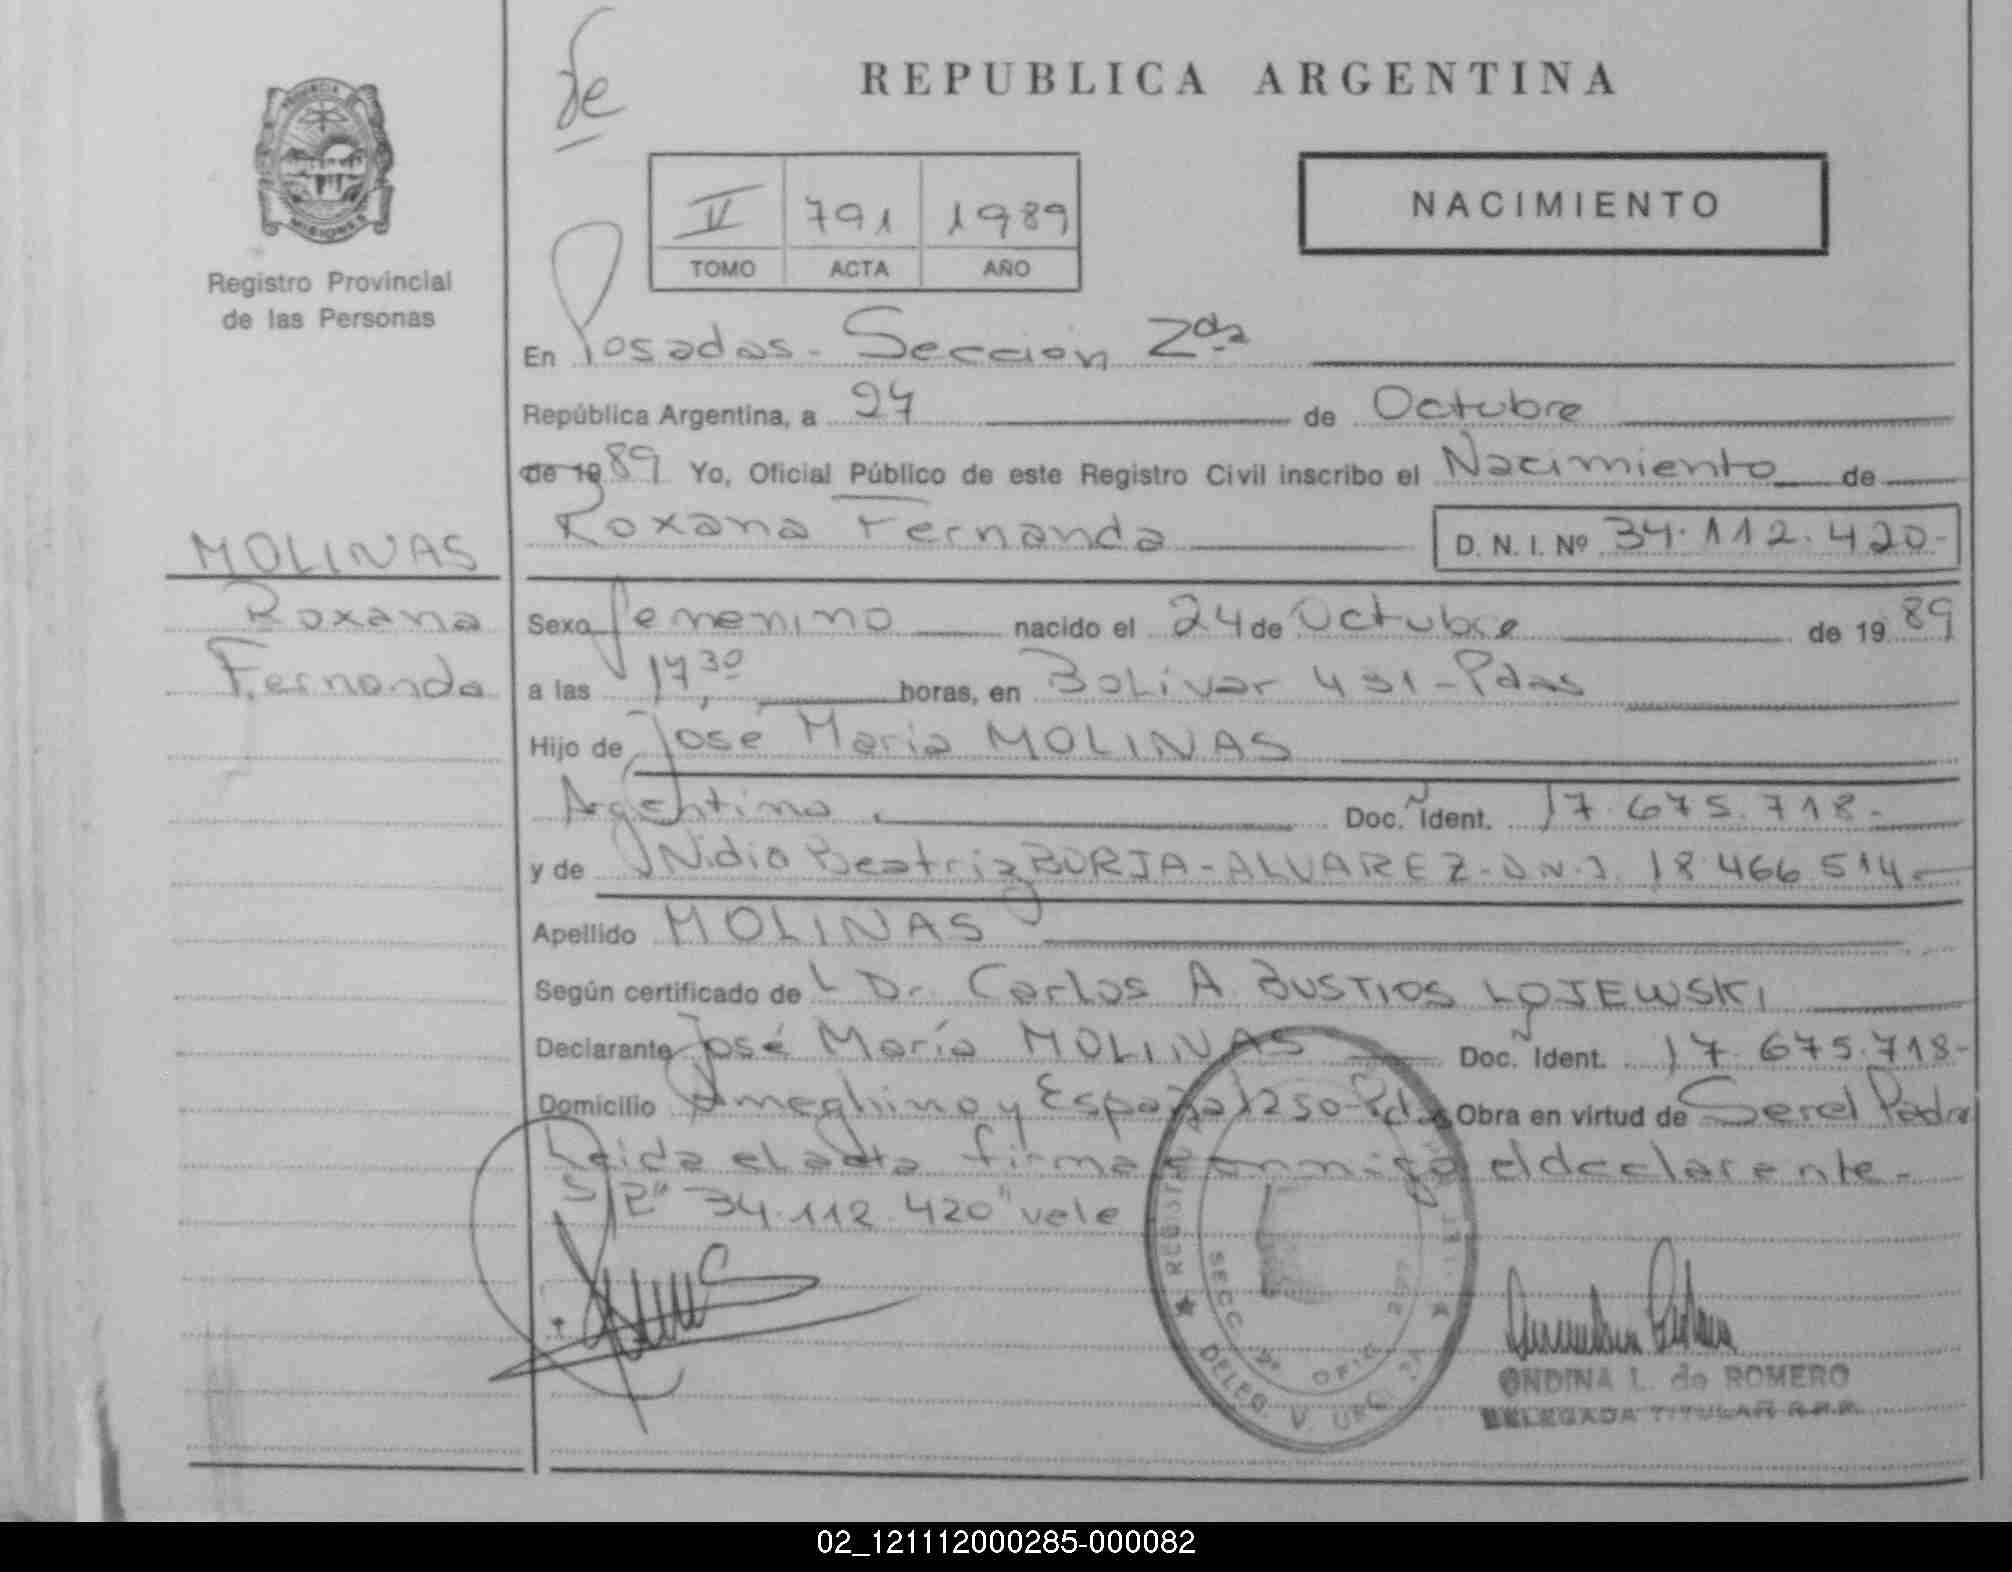 REPUBLICA ARGENTINA
PROVINCIA
MISIONES
Registro Provincial
de las Personas
NACIMIENTO
II 791 1989
TOMO ACTA AÑO
En Posadas - Sección 2da
República Argentina, a 27 de Octubre
de 1989 Yo, Oficial Público de este Registro Civil inscribo el Nacimiento de
Roxana Fernanda D. N. I. Nº 34.112.420-
MOLINAS
Roxana
Fernanda
Sexo femenino nacido el 24 de Octubre de 1989
a las 17,30 horas, en Bolívar 431 - Pdas
Hijo de José María MOLINAS
Argentino Doc. Ident. 17.675.718-
y de Nidia Beatriz BORJA-ALVAREZ-D.N.I. 18.466.514-
Apellido MOLINAS
Según certificado de L Dr. Carlos A. BUSTIOS LOJEWSKI
Declarante José María MOLINAS Doc. Ident. 17.675.718-
Domicilio Ameghino y España 1250-Pdas Obra en virtud de Ser el Padre
Leida el acta firma conmigo el declarente-
S/R "34.112.420" vele
SECC. 2ª OFIC.
DELEG.
ONDINA L. de ROMERO
DELEGADA TITULAR R.P.P.
02_121112000285-000082